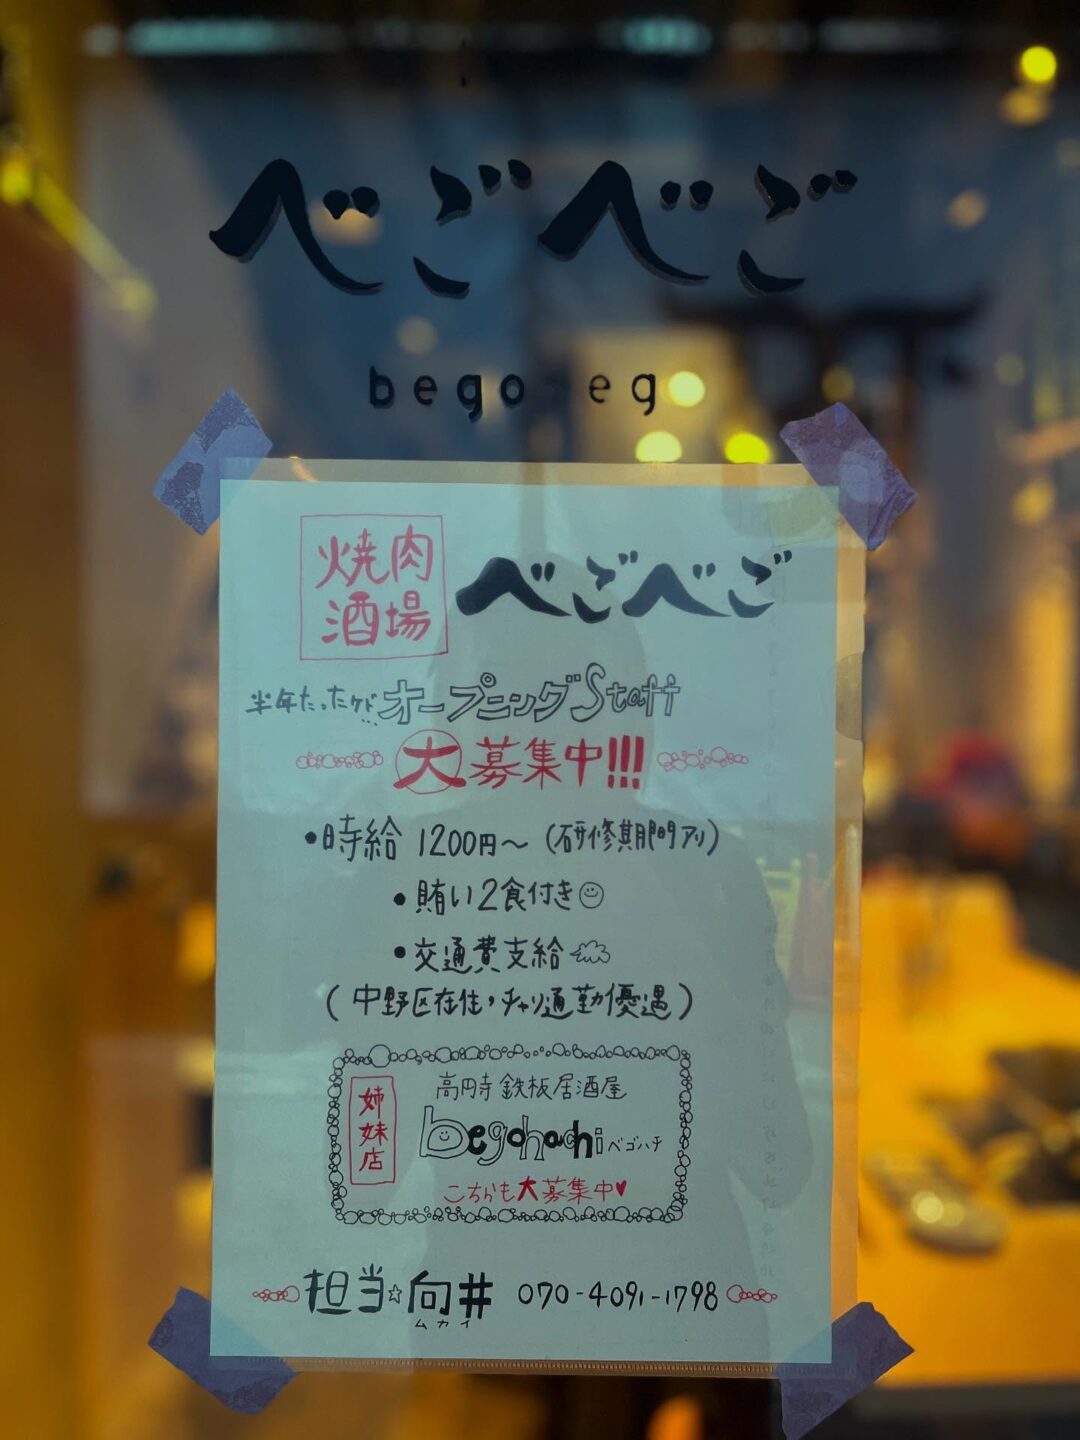 べごべご
bego eg
焼肉
酒場
べごべご
半年たったケド…オープニングStaff
大募集中!!!
•時給 1200円～(研修期間アリ)
•賄い2食付き
•交通費支給
(中野区在住,チャリ通勤優遇)
姉妹店
高円寺 鉄板居酒屋
begohachi ベゴハチ
こちらも大募集中♥
担当☆向井 070-4091-1798
ムカイ